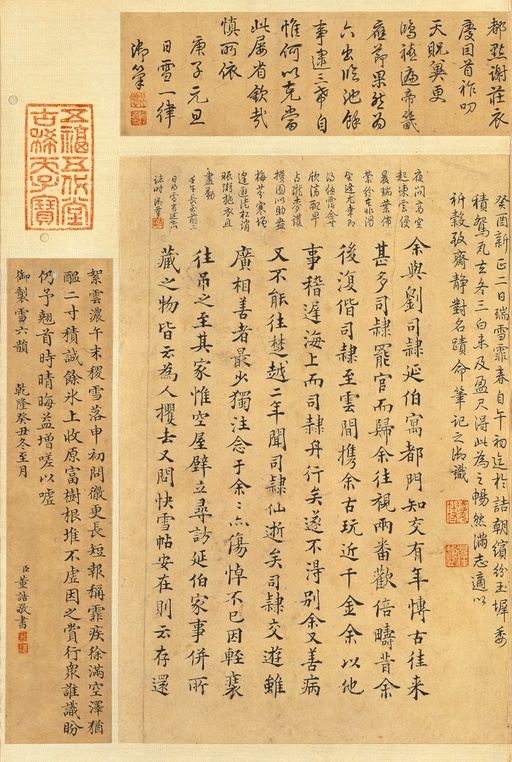 都點謝莊衣
慶因首祚叨
天貺冀更
鴻禧遍帝畿
應節果然為
六出臨池餘
事逮三希自
惟何以克當
此屢省欽哉
慎所依
庚子元旦
日雪一律
御筆
癸酉新正二日瑞雪霏春自午初迄於詰朝繽紛玉墀委
積鴛瓦去冬三白未及盈尺得此為之暢然滿志適以
祈穀致齋靜對名蹟命筆記之御識
夜間高空
起凍雲侵
晨瑞葉佈
余與劉司隸延伯寓都門知交有年博古往來
甚多司隸罷官而歸余往視兩番歡倍疇昔余
後復偕司隸至雲間攜余古玩近千金余以他
事稽遲海上而司隸舟行矣遂不得別余又善病
又不能往楚越二年聞司隸仙逝矣司隸交遊雖
廣相善者最少獨注念于余余亦傷悼不已因輕裝
往吊之至其家惟空屋壁立尋訪延伯家事併所
藏之物皆云為人攫去又問快雪帖安在則云存還
五福五代堂
古稀天子寶
絮雲濃午末稷雪落申初問徹更長短報稱霏疾徐滿空澤猶
醞二寸積誠餘氷上收原富樹根堆不虛因之賞行衆誰識盼
仍予翹首時晴晦益增嗟以噓
御製雪六韻 乾隆癸丑冬至月
臣董誥敬書